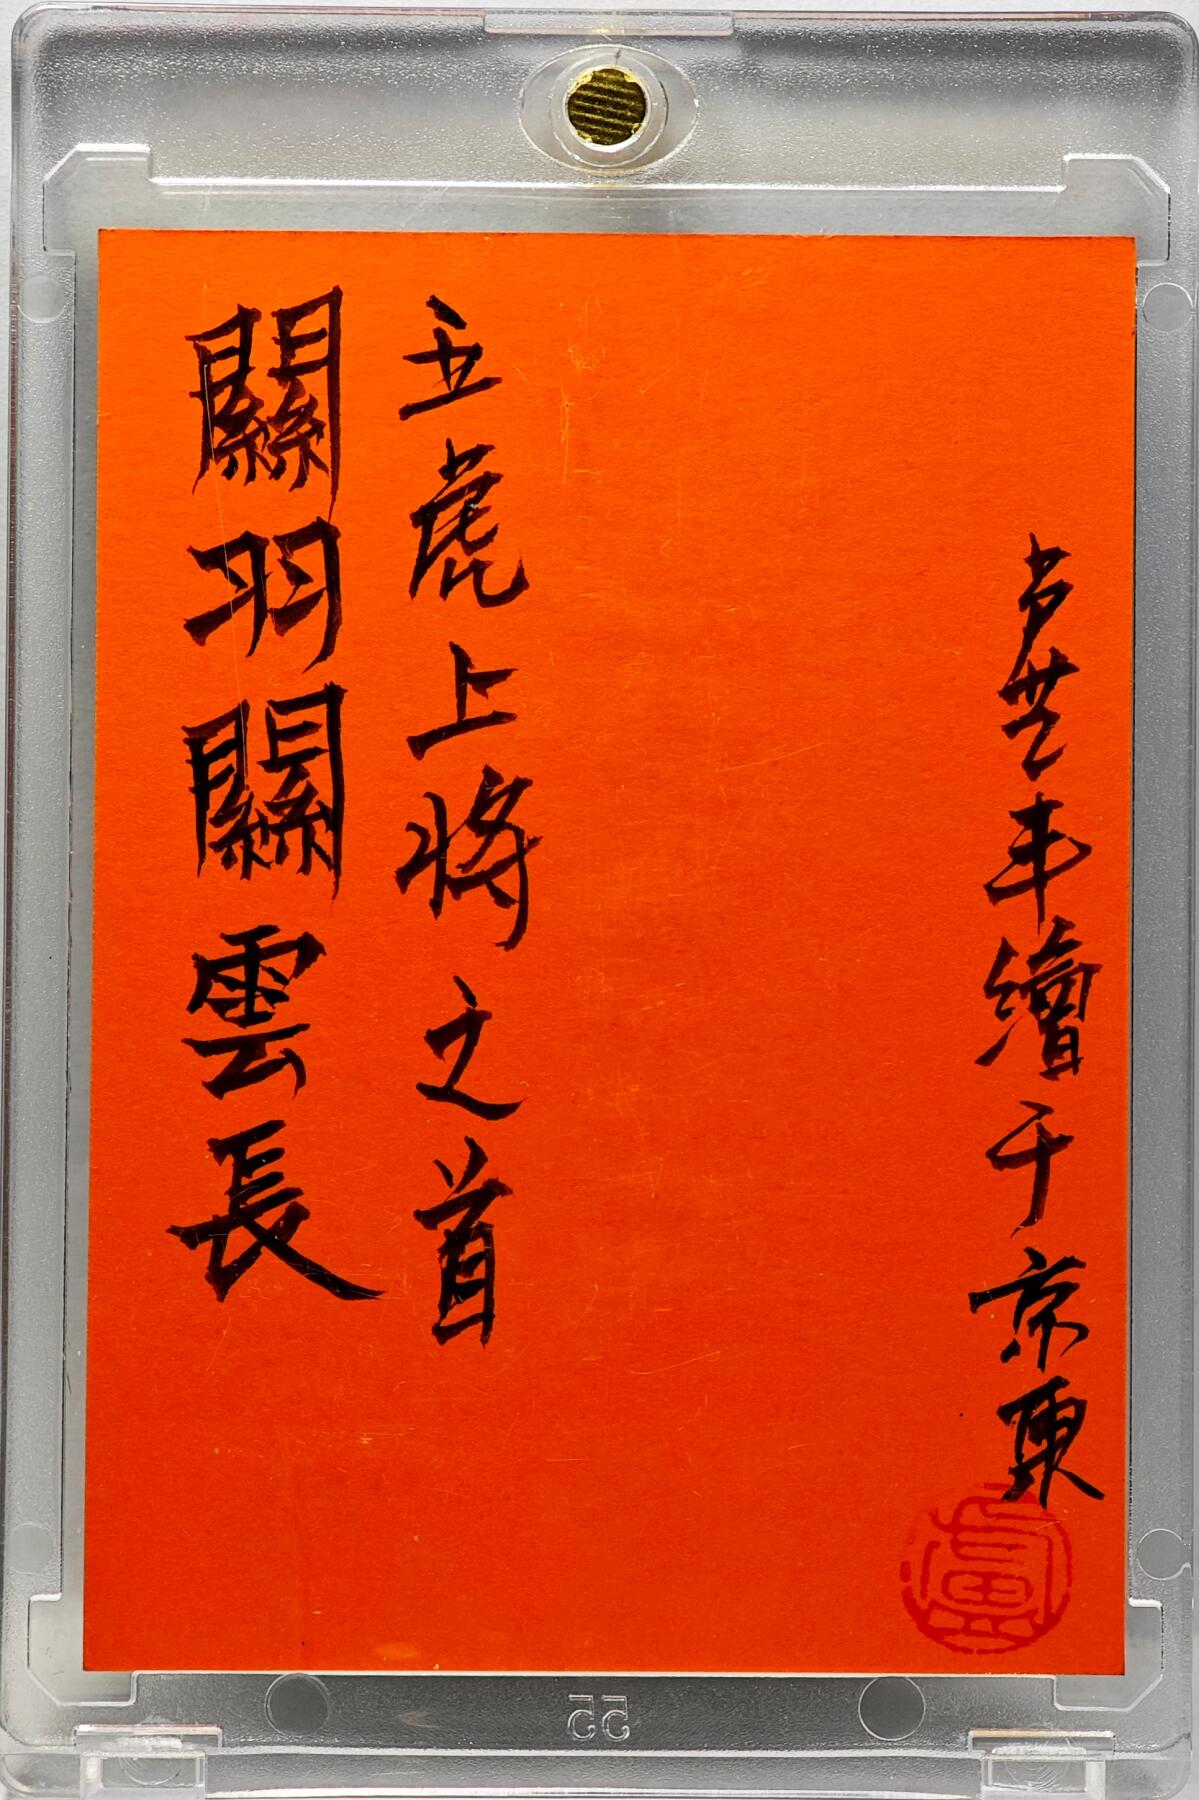 卢芝丰繪于京東
五虎上將之首
關羽關雲長
盧
55